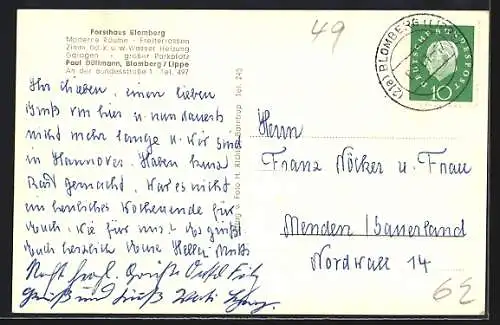 Forsthaus Blomberg
Moderne Räume - Freiterrassen
Zimm. m. k. u. w. Wasser Heizung
Garagen - großer Parkplatz
Paul Düllmann, Blomberg / Lippe
An der Bundesstraße 1 Tel. 497
49
(21a) BLOMBERG (LIPPE)
DEUTSCHE BUNDESPOST
10
Ihr Lieben, einen lieben
Gruß von hier u. nun dauerts
nicht mehr lange u. wir sind
in Hannover. Haben kurz
Rast gemacht. War es nicht
ein herrliches Wochenende für
Euch, wie für uns? Es grüßt
Euch herzlich Eure
Gruß und Kuß
Tel. 245
Herrn
Franz Nöcker u. Frau
Menden / Sauerland
Nordwall 14
62